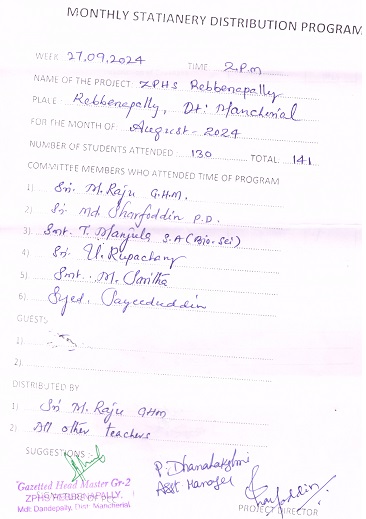 MONTHLY STATIANERY DISTRIBUTION PROGRAM
WEEK 27,09,2024 TIME 2 P.m
NAME OF THE PROJECT: ZPHS Rebbenapally
PLACE: Rebbenapally, Dt: Mancherial
FOR THE MONTH OF August - 2024
NUMBER OF STUDENTS ATTENDED: 130 TOTAL 141
COMMITTEE MEMBERS WHO ATTENDED TIME OF PROGRAM
1) Sri. M. Raju G.H.M.
2) Sri Md Sharfoddin P.D.
3) Smt. T. Manjula S.A (Bio. Sci)
4) Sri. U. Rupachary
5) Smt. M. Savitha
6) Syed. Sayeeduddin
GUESTS
1)
2)
DISTRIBUTED BY
1) Sri M. Raju GHM
2) All other teachers
SUGGESTIONS:-
P. Dhanalakshmi
Asst Manager
Sharfoddin
"Gazetted Head Master Gr-2
ZPHS
Mdl: Dandepally, Dist. Mancherial
PROJECT DIRECTOR